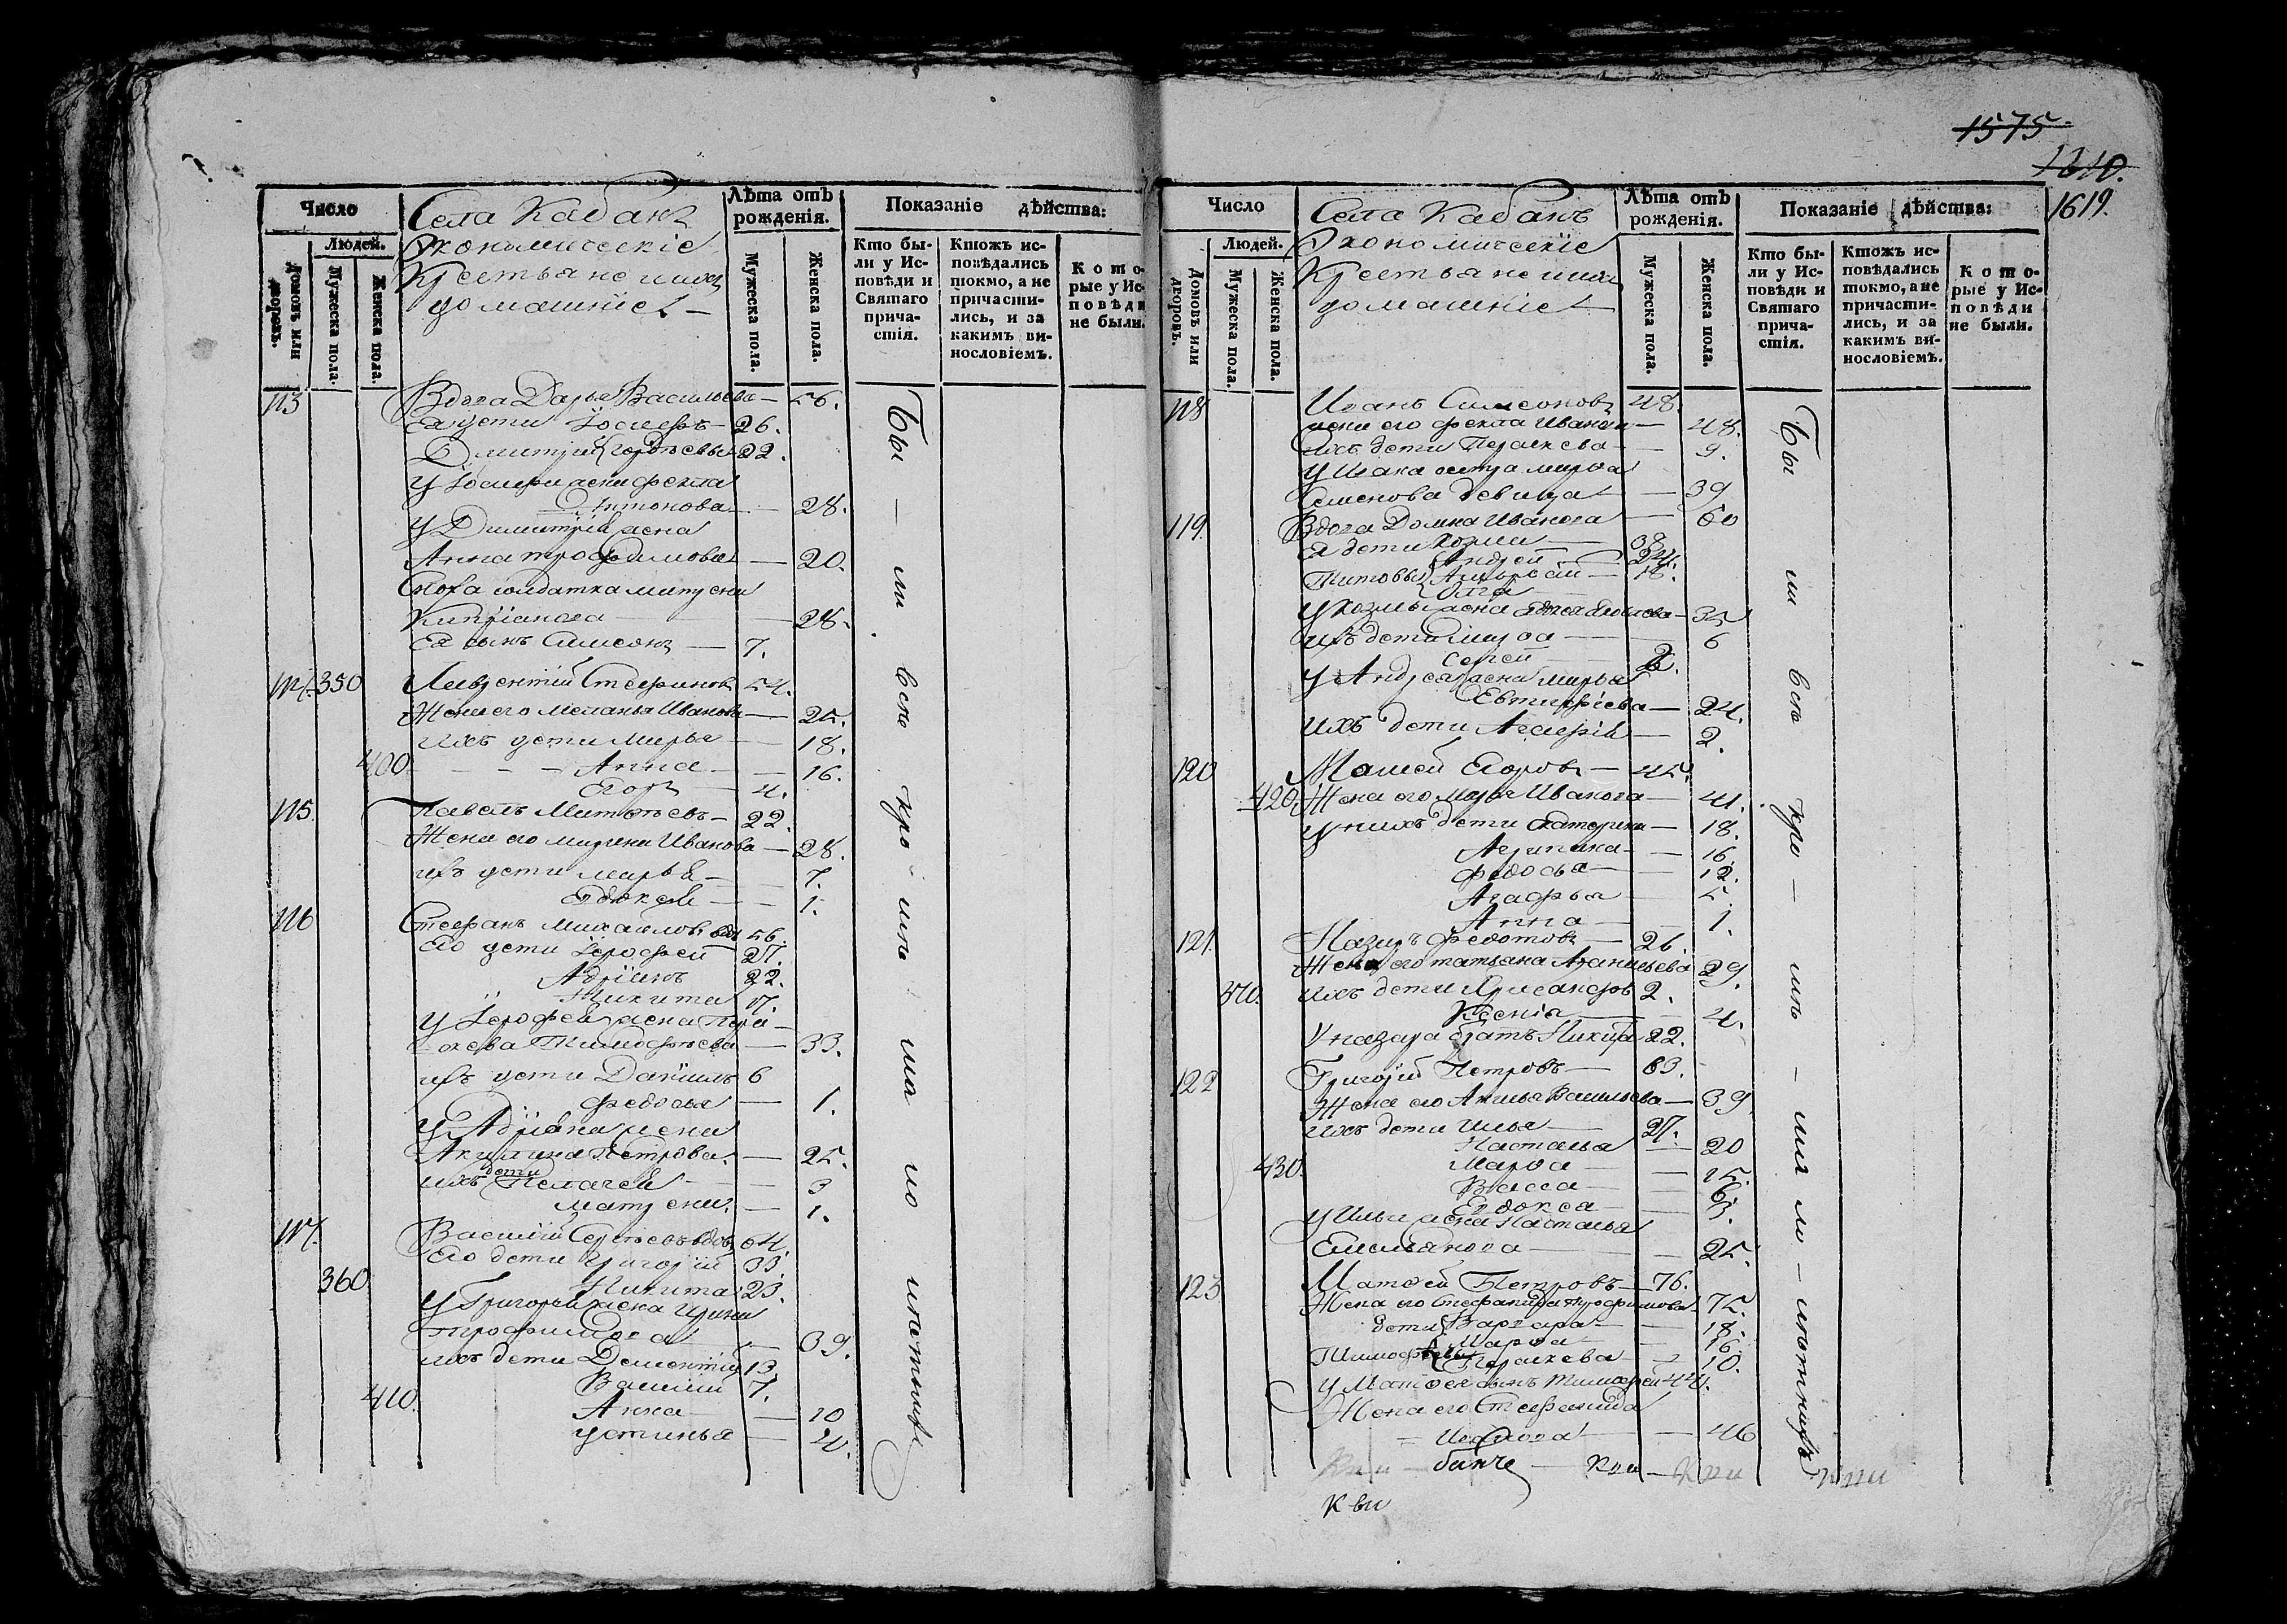 1575
1610.
1619.
Число
Людей.
Домовъ или дворовъ.
Мужеска пола.
Женска пола.
Села Кабанъ
Экономическіе
Крестьяне и ихъ
домашніе
Лѣта отъ рожденія.
Мужеска пола.
Женска пола.
Показаніе дѣйства:
Кто бы-
ли у Ис-
повѣди и
Святаго
прича-
стія.
Ктожъ ис-
повѣдались
токмо, а не
причасти-
лись, и за
какимъ ви-
нословіемъ.
Кото-
рые у Ис-
повѣди
не были.
113 Вдова Дарья Васильева — 56.
Ея дети Іосифъ — 26.
Дмитрій 22.
У Іосифа жена Фекла
Антонова — 28.
У Димитрія жена
Анна Трофимова — 20.
Сноха солдатка
Кипріанова — 28.
Ея сынъ Симеонъ — 7.
114. 350 Лаврентій Стефановъ 54.
Жена его Меланья Иванова — 25.
Ихъ дети Марья — 18.
400. Анна — 16.
Егоръ — 4.
115. Павелъ — 22.
Жена его Марина Иванова — 28.
ихъ дети Марья — 7.
Евдокея — 1.
116 Стефанъ Михайловъ вдов 56.
Его дети Іерофей 27.
Адріанъ 22.
Никита 17.
У Іерофея жена Пара-
скева Тимофеева — 33.
ихъ дети Даніилъ 6
Федосья — 1.
У Адріана жена
Акулина Петрова. — 25.
ихъ дети Пелагея — 3
Матрена. — 1.
117. Василій Сергеевъ вдов. 64.
Его дети Григорій 33.
360 Никита 23.
У Григорья жена Ирина
Трофимова — 39.
ихъ дети Дементій 13.
Василій 7.
410. Анна — 10
Устинья — 4.
Бы — ли всѣ кро — мѣ ма ло лѣтныхъ
Число
Людей.
Домовъ или дворовъ.
Мужеска пола.
Женска пола.
Села Кабанъ
Экономическіе
Крестьяне и ихъ
домашніе
Лѣта отъ рожденія.
Мужеска пола.
Женска пола.
Показаніе дѣйства:
Кто бы-
ли у Ис-
повѣди и
Святаго
прича-
стія.
Ктожъ ис-
повѣдались
токмо, а не
причасти-
лись, и за
какимъ ви-
нословіемъ.
Кото-
рые у Ис-
повѣди
не были.
118 Иванъ Симеоновъ 48.
жена его Фекла Иванова — 48.
Ихъ дети Параскева — 9.
У Ивана сестра Марфа
Семенова девица — 39
119. Вдова Домна Иванова — 60
Ея дети Козма — 38
Андрей — 24.
Титовы 18.
У Козмы жена — 35
ихъ дети — 6
Сергей — 2.
У Андрея жена Марья
Евтифіева — 24.
Ихъ дети — 2.
120 Моисей Егоровъ — 45.
420. Жена его Марья Иванова — 41.
У нихъ дети Екатерина — 18.
Агрипина — 16.
Федосья — 12.
Агафья — 5.
Анна — 1.
121. Назаръ Федотовъ — 26.
Жена его Татьяна 29.
370. Ихъ дети 2.
Ксенія — 4.
У Назара братъ Никита 22.
122 Григорій Петровъ — 63.
Жена его Васильева — 39
Ихъ дети Илья — 27.
Наталья — 20
430. Марфа — 15.
Васса — 6.
Евдокса — 3.
У Ильи жена Наталья
Емельянова — 25.
123 Матфей Петровъ — 76.
Жена его Стефанида Трофимова 75.
дети Варвара — 18.
Марфа — 16.
Параскева — 10.
У Матфея сынъ Тимофей 44.
Жена его Стефанида
Иванова — 46
Бы ли всѣ кро — мѣ — ма ло — лѣтныхъ